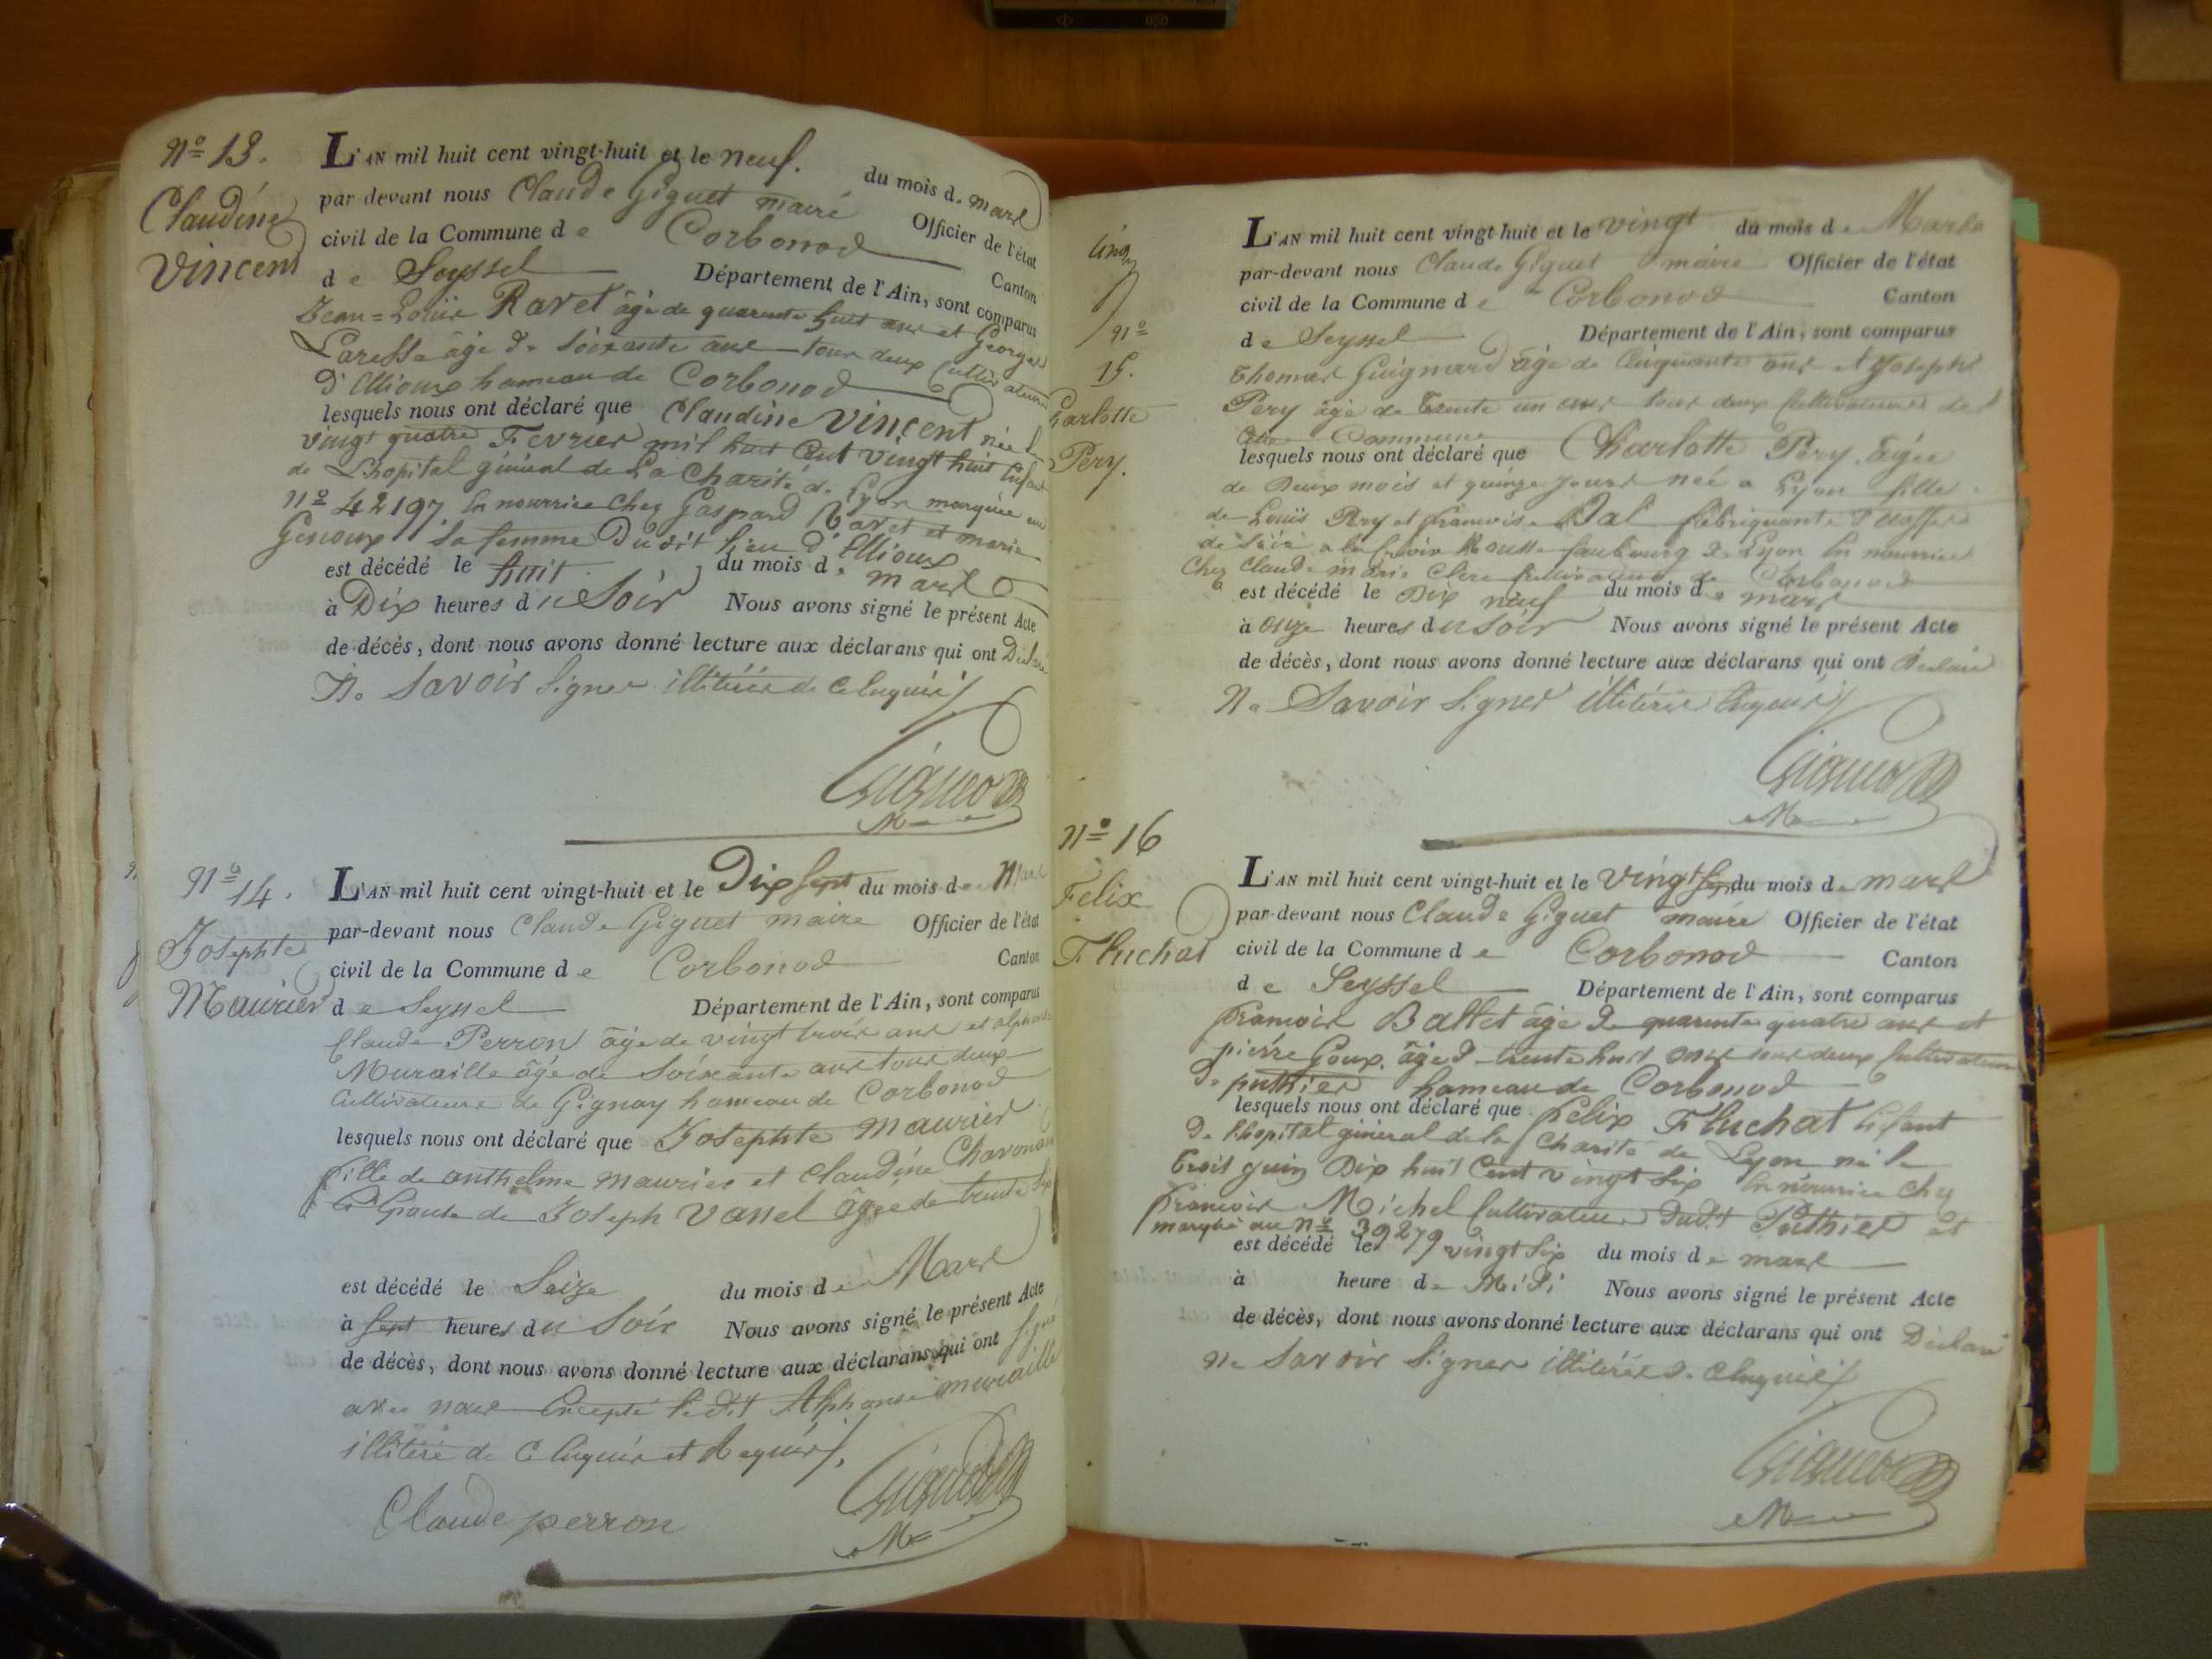 nº 13.
Claudine
Vincent
L'AN mil huit cent vingt-huit et le neuf. du mois de mars
par devant nous Claude Giguet maire Officier de l'état
civil de la Commune de Corbonod Canton
de Seyssel Département de l'Ain, sont comparus
Jean=Louis Ravet âgé de quarante huit ans et George
Paressa âgé de soixante ans tous deux Cultivateurs
D'Ellioux hameau de Corbonod
lesquels nous ont déclaré que Claudine Vincent née le
vingt quatre Fevrier mil huit Cent vingt huit Enfant
de L'hopital général de La Charité de Lyon marquée au
nº 42197 en nourrice Chez Gaspard Ravet et marie
Genoux sa femme Dudit lieu d'Ellioux
est décédé le huit du mois de mars
à Dix heures du Soir Nous avons signé le présent Acte
de décès, dont nous avons donné lecture aux déclarans qui ont Déclaré
Ne Savoir Signer illitérés de ce Enquis
Giguet
nº 14.
Josephte
Maurier
L'AN mil huit cent vingt-huit et le Dix Sept du mois de Mars
par-devant nous Claude Giguet maire Officier de l'état
civil de la Commune de Corbonod Canton
de Seyssel Département de l'Ain, sont comparus
Claude Perron âgé de vingt trois ans et alphonse
Muraille âgé de Soixante ans tous deux
Cultivateurs de Gignay hameau de Corbonod
lesquels nous ont déclaré que Josephte Maurier
fille de anthelme Maurier et Claudine
Epouse de Joseph Vanel âgée de trente six
est décédé le Seize du mois de Mars
à Sept heures du Soir Nous avons signé le présent Acte
de décès, dont nous avons donné lecture aux déclarans qui ont signé
avec nous Excepté ledit Alphonse muraille
illitéré de ce Enquis et Requis
Giguet
Claude perron
Cinq
nº
15.
Charlotte
Pery.
L'AN mil huit cent vingt-huit et le vingt du mois de Mars
par-devant nous Claude Giguet maire Officier de l'état
civil de la Commune de Corbonod Canton
de Seyssel Département de l'Ain, sont comparus
Thomas Guignard âgé de Cinquante ans et Joseph
Pery âgé de trente un ans tous deux Cultivateurs de
Commune
lesquels nous ont déclaré que Charlotte Pery âgée
de Deux mois et quinze jours née a Lyon fille
de Louis Pery et francoise Dal fabriquants d'etoffes
de soie a la Croix Rousse faubourg de Lyon en nourrice
Chez Claude marie Clerc Cultivateur de Corbonod
est décédé le Dix neuf du mois de mars
à onze heures du soir Nous avons signé le présent Acte
de décès, dont nous avons donné lecture aux déclarans qui ont Déclaré
Ne Savoir Signer illitérés Enquis
Giguet
nº 16
Felix
Fluchat
L'AN mil huit cent vingt-huit et le vingt Sept du mois de mars
par-devant nous Claude Giguet maire Officier de l'état
civil de la Commune de Corbonod Canton
de Seyssel Département de l'Ain, sont comparus
francois Ballet âgé de quarante quatre ans et
pierre Goux âgé de trente huit ans tous deux Cultivateurs
de puthier hameau de Corbonod
lesquels nous ont déclaré que felix Fluchat Enfant
De l'hopital général de la Charité de Lyon né le
trois juin Dix huit Cent vingt six en nourrice Chez
francois Michel Cultivateur dudit Puthier et
marqué au nº 39279
est décédé le vingt six du mois de mars
à heure de Midi Nous avons signé le présent Acte
de décès, dont nous avons donné lecture aux déclarans qui ont Déclaré
Ne Savoir Signer illitérés de ce Enquis
Giguet